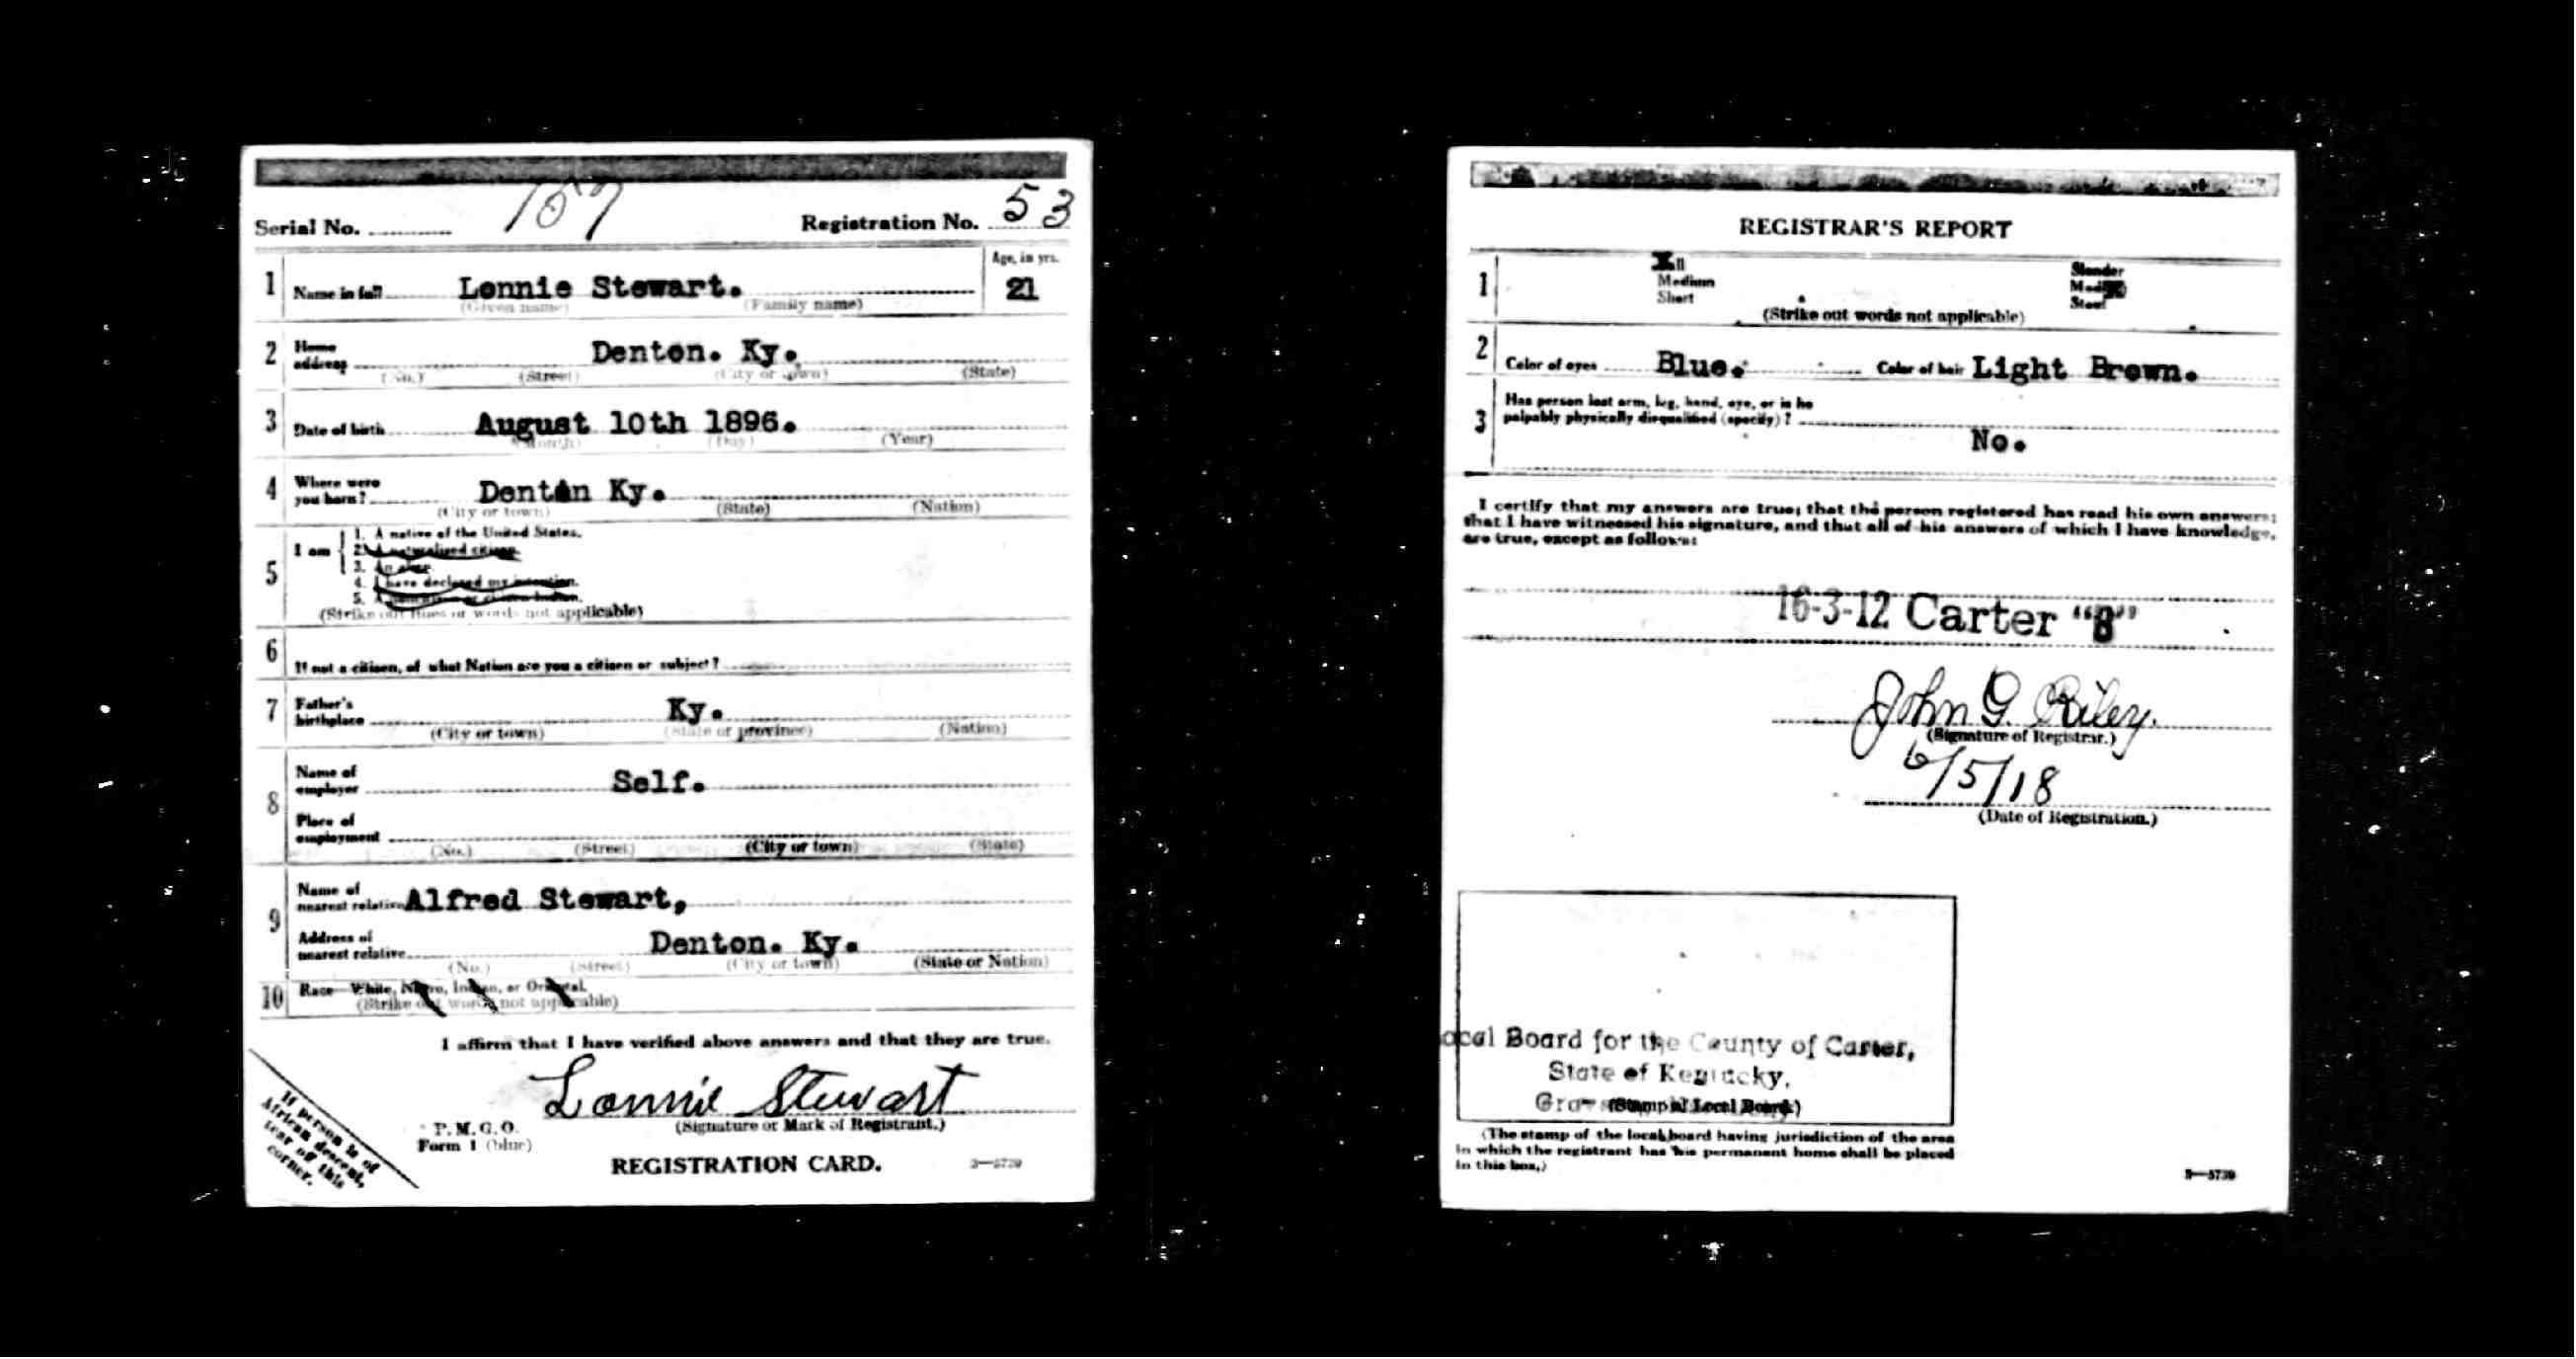 Serial No. 157 Registration No. 53
1 Name in full Lonnie Stewart. Age, in yrs. 21
(Given name) (Family name)
2 Home address Denton. Ky.
(No.) (Street) (City or town) (State)
3 Date of birth August 10th 1896.
(Month) (Day) (Year)
4 Where were you born? Denton Ky.
(City or town) (State) (Nation)
5 I am
1. A native of the United States.
2. A naturalized citizen.
3. An alien.
4. I have declared my intention.
5. A
(Strike out lines or words not applicable)
6 If not a citizen, of what Nation are you a citizen or subject?
7 Father's birthplace Ky.
(City or town) (State or province) (Nation)
8 Name of employer Self.
Place of employment
(No.) (Street) (City or town) (State)
9 Name of nearest relative Alfred Stewart,
Address of nearest relative Denton. Ky.
(No.) (Street) (City or town) (State or Nation)
10 Race—White, Negro, Indian, or Oriental.
(Strike out words not applicable)
I affirm that I have verified above answers and that they are true.
Lonnie Stewart
(Signature or Mark of Registrant.)
P. M. G. O.
Form 1 (blue)
REGISTRATION CARD.
3—5739
If person is of
African descent,
tear off this
corner.
REGISTRAR'S REPORT
1 Tall Slender
Medium Medium
Short Stout
(Strike out words not applicable)
2 Color of eyes Blue. Color of hair Light Brown.
3 Has person lost arm, leg, hand, eye, or is he
palpably physically disqualified (specify)?
No.
I certify that my answers are true; that the person registered has read his own answers;
that I have witnessed his signature, and that all of his answers of which I have knowledge,
are true, except as follows:
16-3-12 Carter "B"
John G. Riley.
(Signature of Registrar.)
6/5/18
(Date of Registration.)
ocal Board for the County of Carter,
State of Kentucky,
(Stamp of Local Board)
(The stamp of the local board having jurisdiction of the area
in which the registrant has his permanent home shall be placed
in this box.)
3—5739